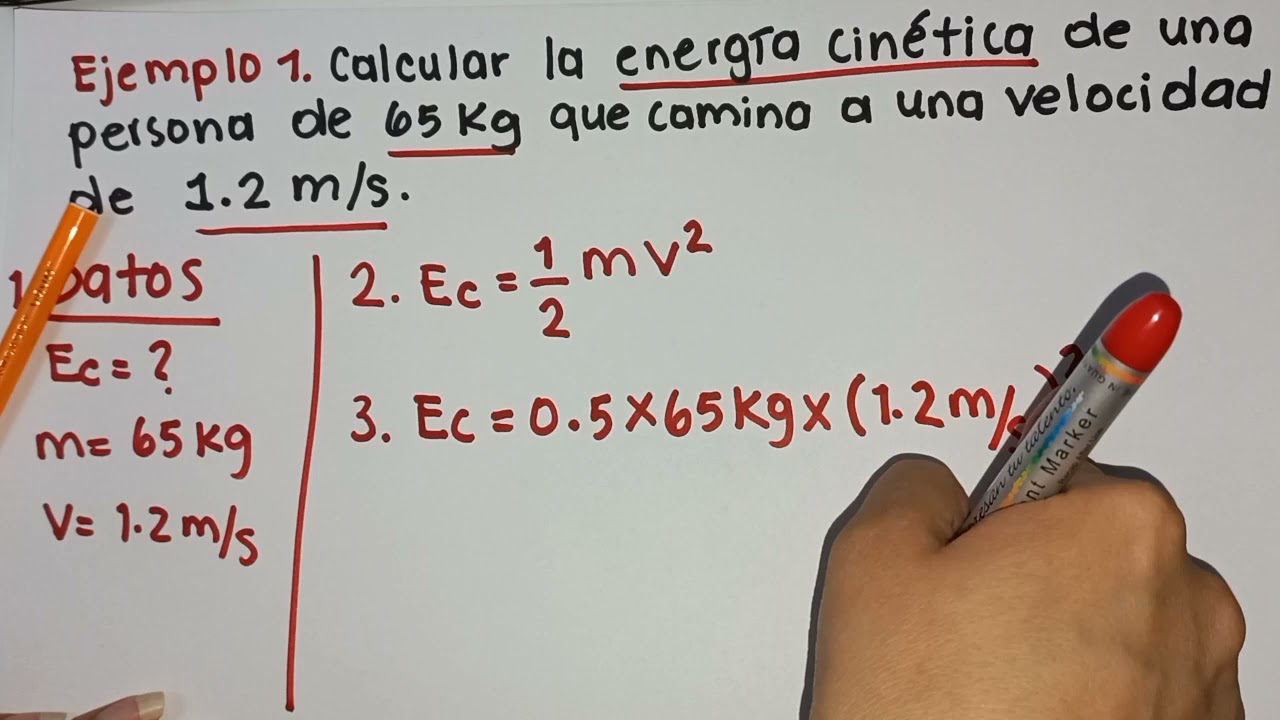 Ejemplo 1. Calcular la energía cinética de una
persona de 65 Kg que camina a una velocidad
de 1.2 m/s.
1. Datos
Ec = ?
m= 65 Kg
V= 1.2 m/s
2. Ec = 1/2 m v²
3. Ec = 0.5 x 65 Kg x (1.2 m/
tu talento.
nt Marker